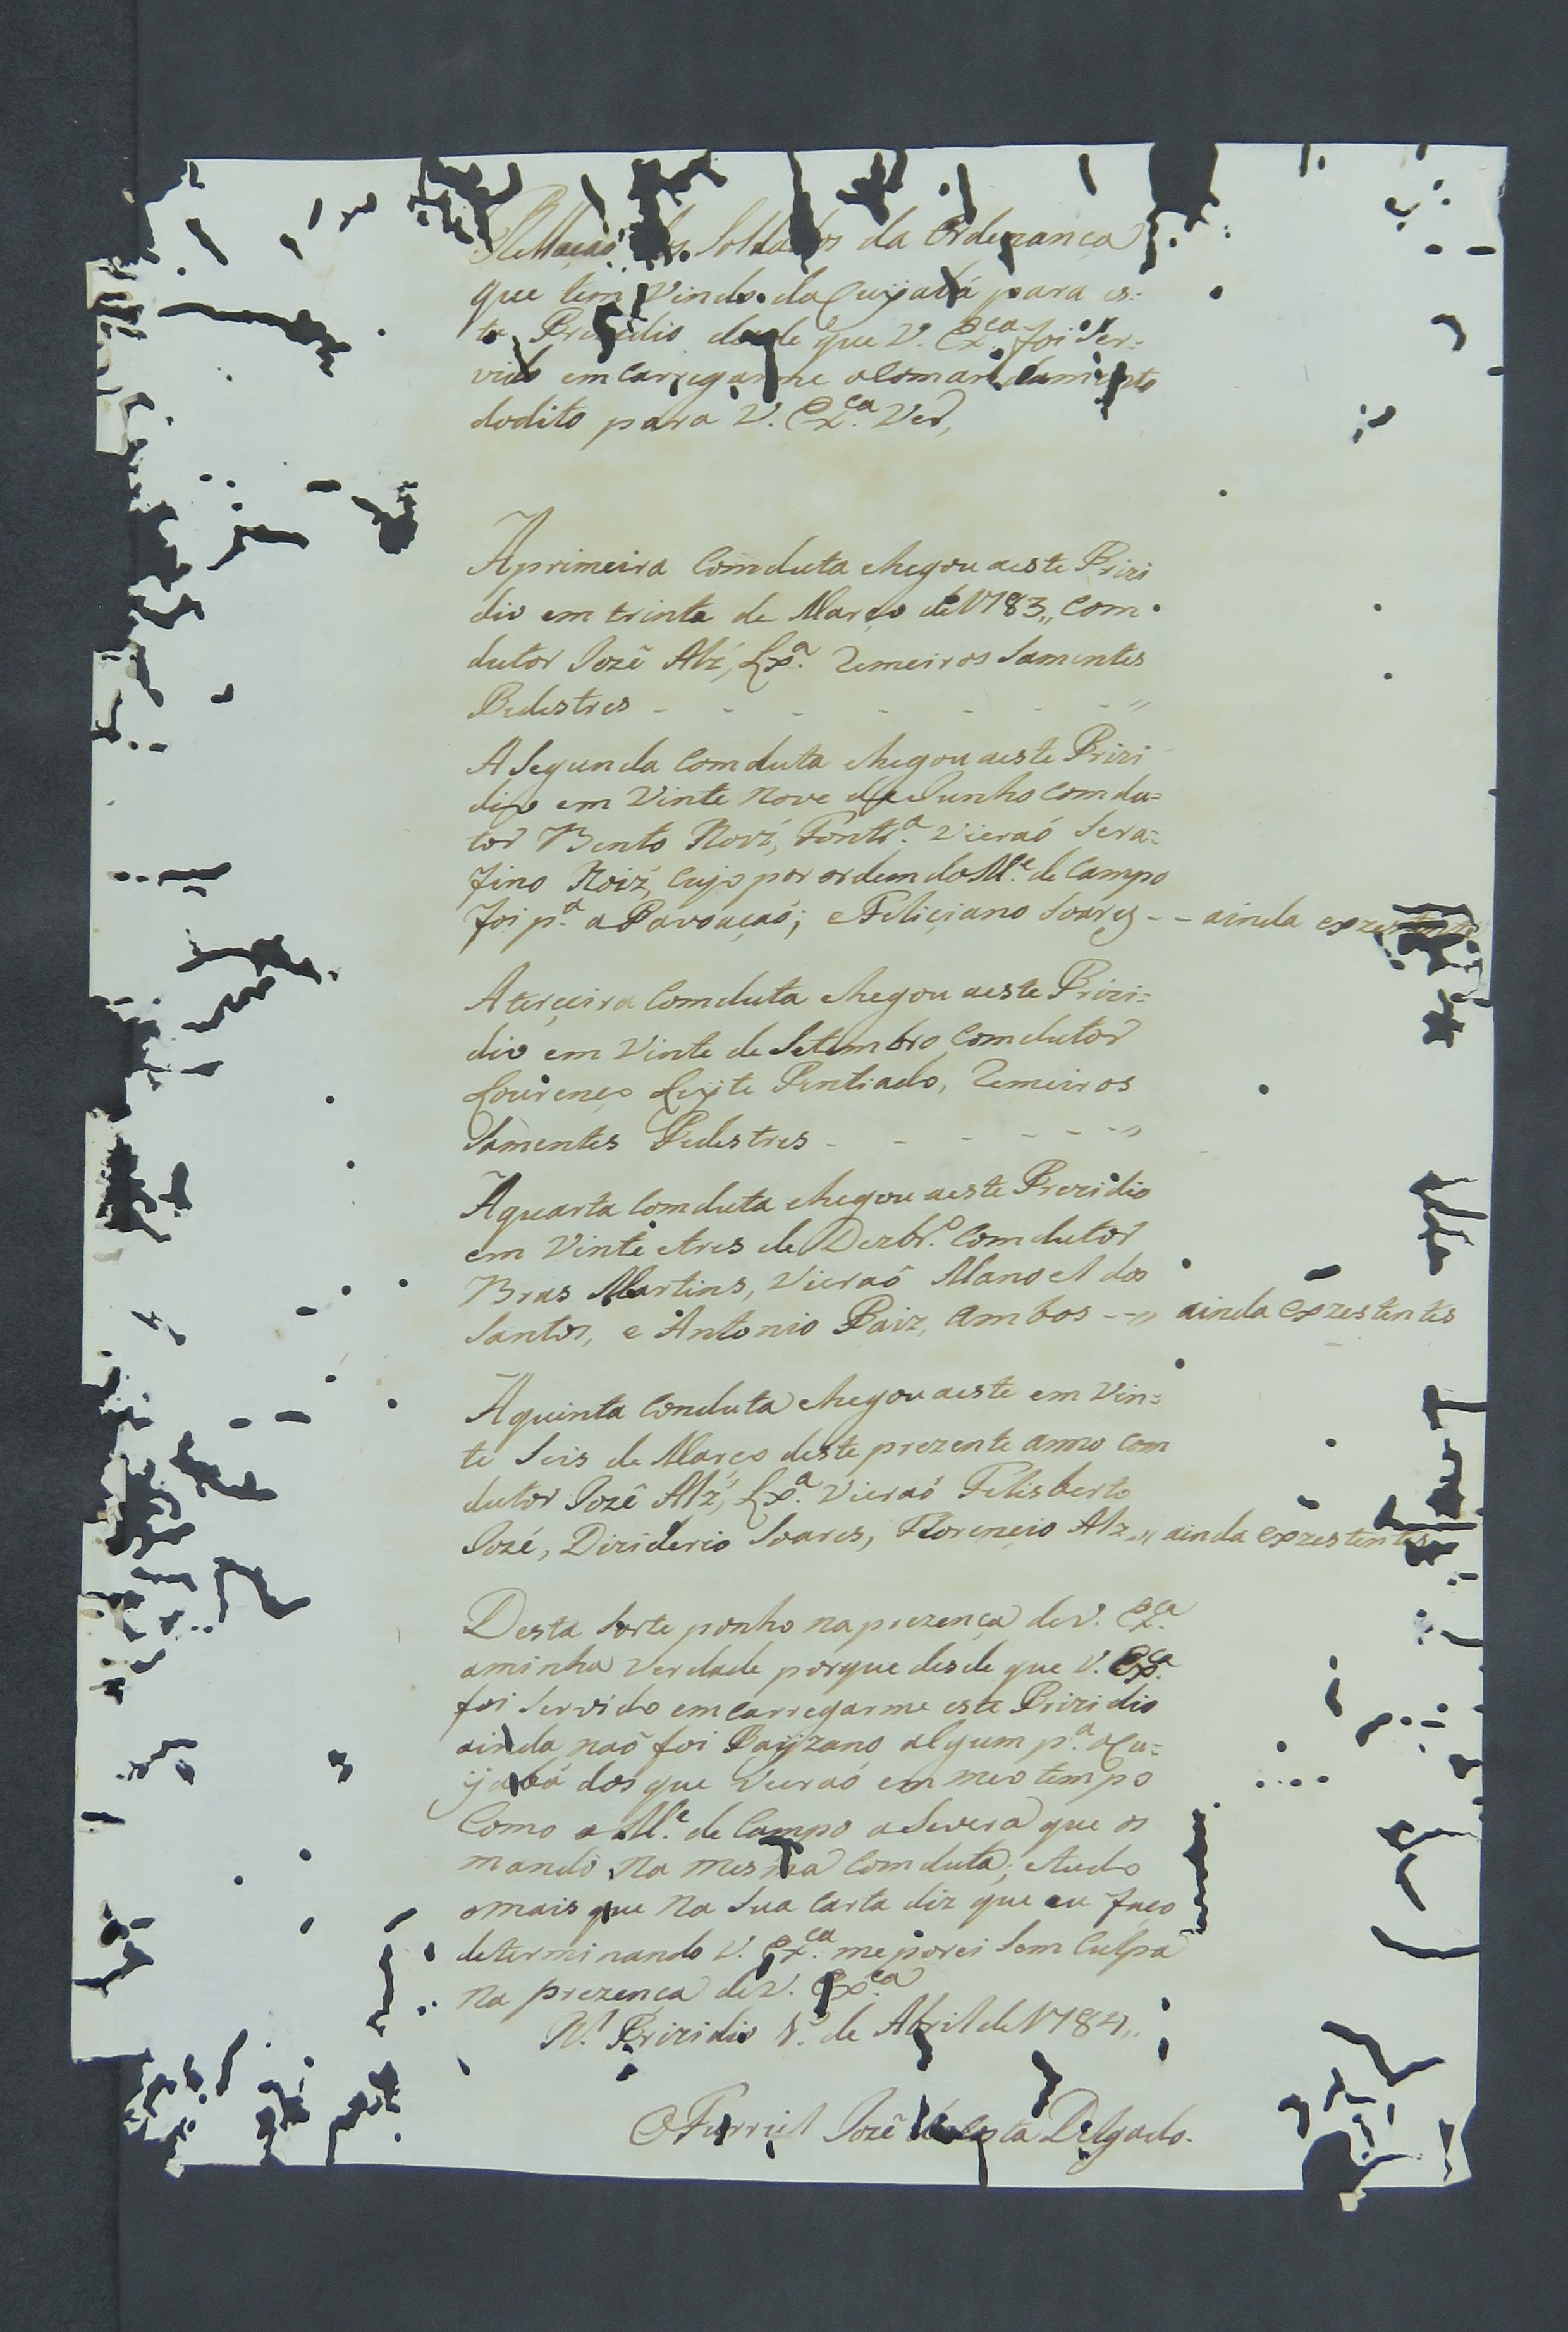 Rellaçaõ dos Soldados da Ordenança
que tem Vindo do Cuyabá para es:
te Prezidio desde que V. Exca. foi Ser:
vido emCarregarme oComandamento
dodito para V. Exca. Ver,
Aprimeira Comduta chegou aeste Prizi
dio em trinta de Março de 1783,, Com
dutor Jozê Alz', Lxa. Remeiros Samentes
Pedestres - - - - - - - "
ASegunda Comduta chegou aeste Prizi
dio em Vinte Nove de Junho Comdu=
tor Bento Roiz', Fontra. Vieraó Sera=
fino Roiz, Cujo por ordem do Me. de Campo
foi pa. a Pavoaçaó; e Feliçiano Soares - - ainda exzestente
Aterçeira Comduta chegou aeste Prizi=
dio em Vinte de Setembro Comdutor
Lourenço Leyte Pentiado, Remeiros
Samentes Pedestres - - - - - - "
Aquarta Comduta chegou aeste Prezidio
em Vinte etres de Dezbro. Comdutor
Bras Martins, Vieraó Manoel dos
Santos, e Antonio Paiz, ambos - - " ainda exzestentes
Aquinta Conduta chegou aeste em Vin=
te Seis de Março deste prezente anno Com
dutor Jozê Alz', Lxa. Vieraó Felisberto
Jozé, Diziderio Soares, Florençio Alz ,, ainda exzestentes
Desta Sorte ponho na prezença de V. Exca.
aminha Verdade porque desde que V. Exca.
foi Servido emCarregarme este Prizidio
ainda naõ foi Payzano algum pa. oCu=
yabá dos que Vieraó em meo tempo
Como o Me. de Campo aSevera que os
mando na mesma Comduta; etudo
omais que na Sua Carta diz que eu faço
determinando V. Exca. meporei Sem Culpa
na prezença de V. Exca.
N. Prizidio 1º. de Abril de 1784,,
O Furriel Jozê da Costa Delgado.